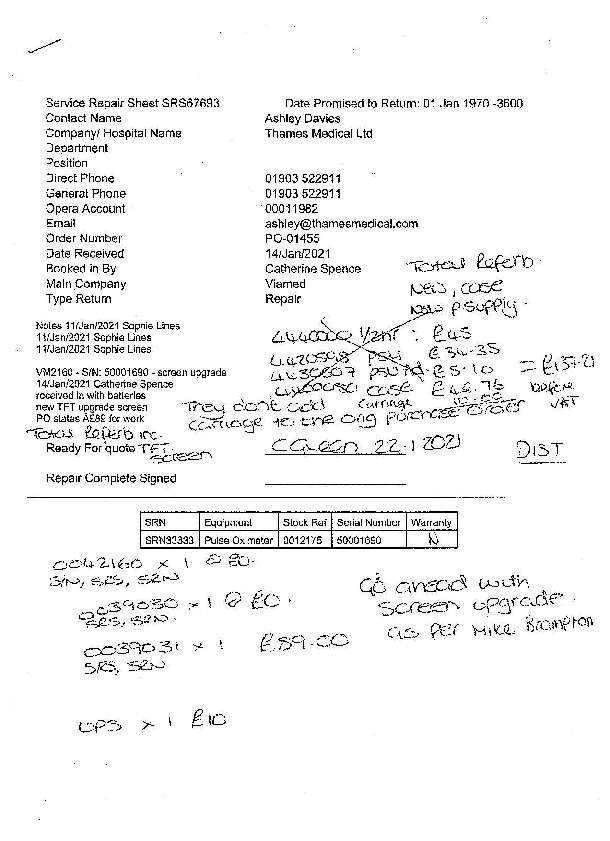 Service Repair Sheet SRS67693 Date Promised to Return: 01 Jan 1970 -3600
Contact Name Ashley Davies
Company/ Hospital Name Thames Medical Ltd
Department
Position
Direct Phone 01903 522911
General Phone 01903 522911
Opera Account 00011982
Email ashley@thamesmedical.com
Order Number PO-01455
Date Received 14/Jan/2021
Booked in By Catherine Spence
Main Company Viamed
Type Return Repair
Total Referb.
New, case
New P supply.
Notes 11/Jan/2021 Sophie Lines
11/Jan/2021 Sophie Lines
11/Jan/2021 Sophie Lines
: £45
PSU £34-35
£5-10 = £137-21
case £42.76 before VAT
VM2160 - S/N: 50001690 - screen upgrade
14/Jan/2021 Catherine Spence
received in with batteries
new TFT upgrade screen
PO states A£89 for work
They dont add carriage
carriage to the orig purchase order
Total Referb inc.
Ready For quote TFT Screen
CGreen 22-1 2021
DIST
Repair Complete Signed
SRN Equipment Stock Ref Serial Number Warranty
SRN33333 Pulse Oximeter 0012175 50001690 N
0042160 x 1 @ £0.
S/N, SRS, SRN
0039030 x 1 @ £0.
SRS, SRN.
0039031 x 1 £89.00
SRS, SRN
Go ahead with
screen upgrade.
as per Mike Brampton
UPS x 1 £10